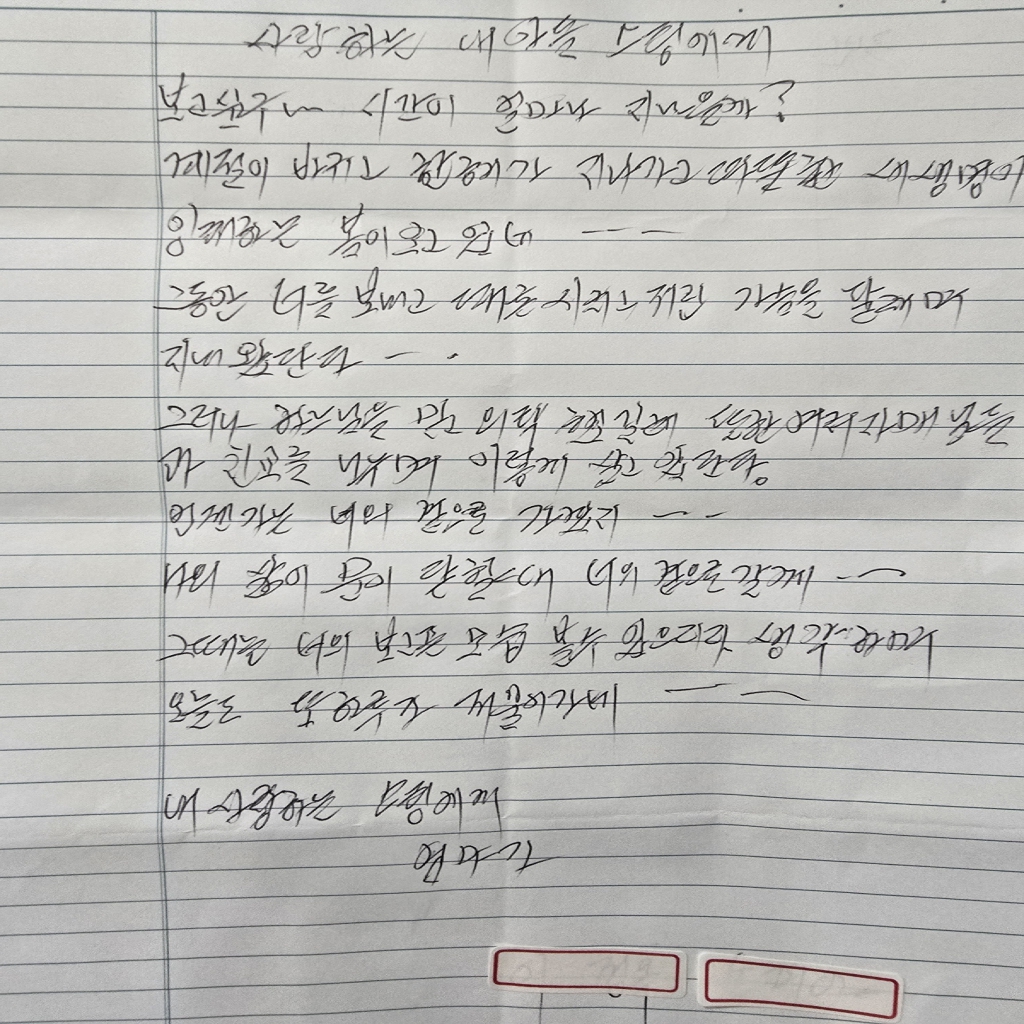 사랑하는 내 아들 고형에게
보고싶구나 시간이 얼마나 지났을까?
계절이 바뀌고 한해가 지나가고 새생명이
임태하는 봄이 오고 있네 ---
그동안 너를 보내고 때론 시리고 저린 가슴을 달래며
지내 왔단다 --.
그러나 하느님을 믿고 의탁 하길래 수많 여러 자매님들
과 친교를 나누며 이렇게 살고 있단다.
언젠가는 너의 곁을 가겠지 ---
나의 삶이 끝이 나는 날 너의 곁으로 갈게 --
그때는 너의 보고픈 모습 볼수 있으리라 생각하며
오늘도 또 하루가 저물어가네 ---
내 사랑하는 고형에게
엄마가